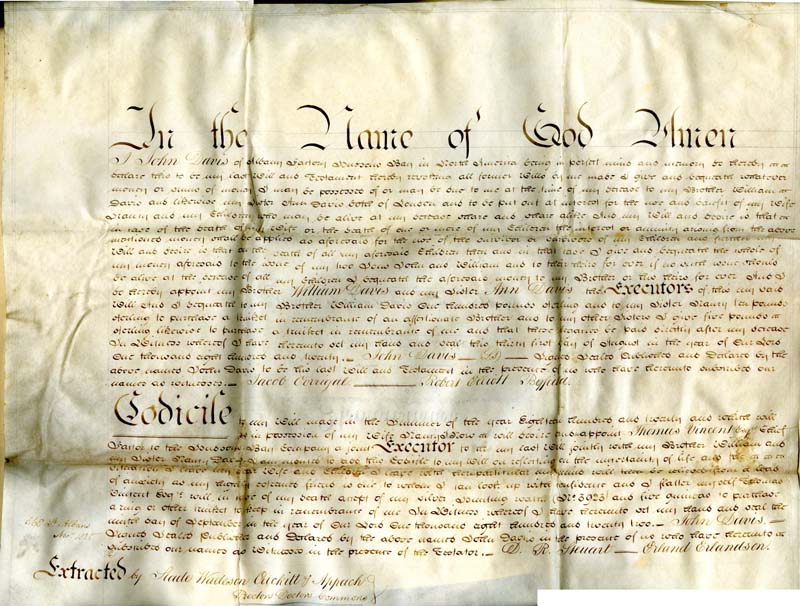 In the Name of God Amen
I John Davis of Albany Factory Hudsons Bay in North America being in perfect mind and memory do hereby
declare this to be my last Will and Testament hereby revoking all former Wills by me made I give and bequeath whatever
money or sums of money I may be possessed of or may be due to me at the time of my decease to my Brother William
Davis and likewise my Sister Ann Davis both of London and to be put out at interest for the use and benefit of my Wife
Nancy and my Children that may be alive at my decease share and share alike And my Will and desire is that
in case of the death of my Wife or the death of one or more of my Children the interest or annuity arising from the above
mentioned money shall be applied as aforesaid for the use of the survivor or survivors of my Children and further my
Will and desire is that in the death of all my aforesaid Children then and in that case I give and bequeath the whole of
my money aforesaid to the issue of my two Sons John and William and to their heirs for ever
be alive at the decease of all my Children I bequeath the aforesaid money to my Brother or his heirs for ever And I
do hereby appoint my Brother William Davis and my Sister Ann Davis the Executors of this my said
Will And I bequeath to my Brother William Davis One hundred pounds sterling and to my Sister Nancy ten pounds
sterling to purchase a trinket in remembrance of an affectionate Brother and to my other Sisters I give five pounds
sterling likewise to purchase a trinket in remembrance of me and that these legacies be paid directly after my decease
In Witness whereof I have hereunto set my hand and seal this thirty first day of August in the year of Our Lord
One thousand eight hundred and twenty. — John Davis — (LS) — Signed Sealed Published and Declared by the
above named John Davis to be his last Will and Testament in the presence of us who have hereunto subscribed our
names as witnesses. — Jacob Corrigal — Robert
Codicile to my Will made in the Summer of the year Eighteen hundred and twenty and which will
is in possession of my Wife Nancy Now it will desire and appoint Thomas Vincent Esqr. Chief
Factor to the Hudsons Bay Company a joint Executor to my last Will jointly with my Brother William and
my Sister Nancy Davis
of anxiety as my
Vincent Esqr. will in case of my death accept of my Silver Hunting watch No. 5025 and five guineas to purchase
a ring or other trinket to keep in remembrance of me In Witness whereof I have hereunto set my hand and seal the
ninth day of September in the year of Our Lord One thousand eight hundred and twenty two. — John Davis. —
Signed Sealed Published and Declared by the above named John Davis in the presence of us who have hereunto
subscribed our names as Witnesses in the presence of the Testator. — D. R. Stewart — Erland Erlandson.
Extracted by Slade Wadeson Crickitt & Appach
Proctors Doctors Commons